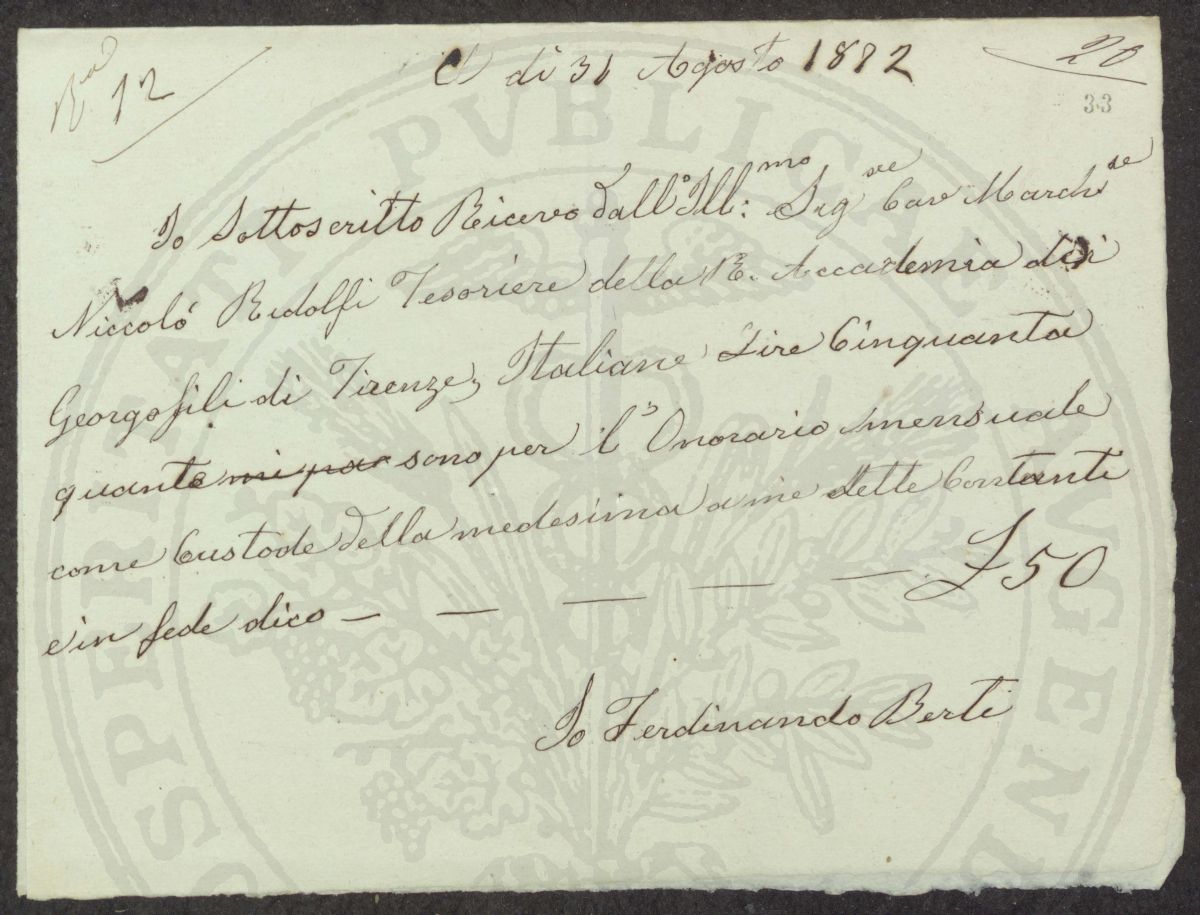 R.ta 12
A di 31 Agosto 1872
20
33
Io Sottoscritto Ricevo dall' Ill:mo Sigre Cav Marchse
Niccoló Ridolfi Tesoriere della R. Accademia dei
Georgofili di Firenze, Italiane Lire Cinquanta
quante sono per l' Onorario mensuale
come Custode della medesima a me dette Contanti
e in fede dico — — — — — £ 50
Io Ferdinando Berti
PROSPERITATI PVBLICAE AVGENDAE